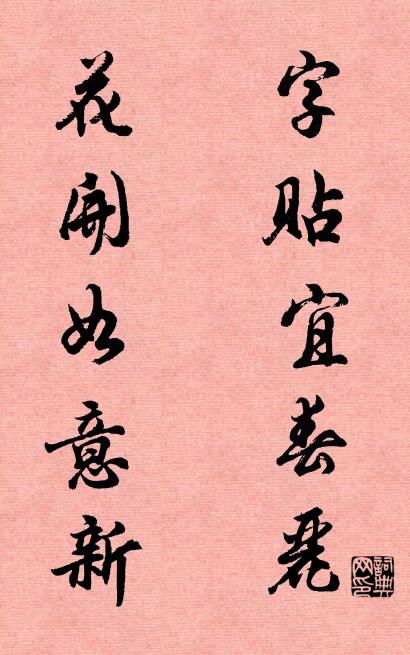 字貼宜春麗
花開如意新
詞典網印